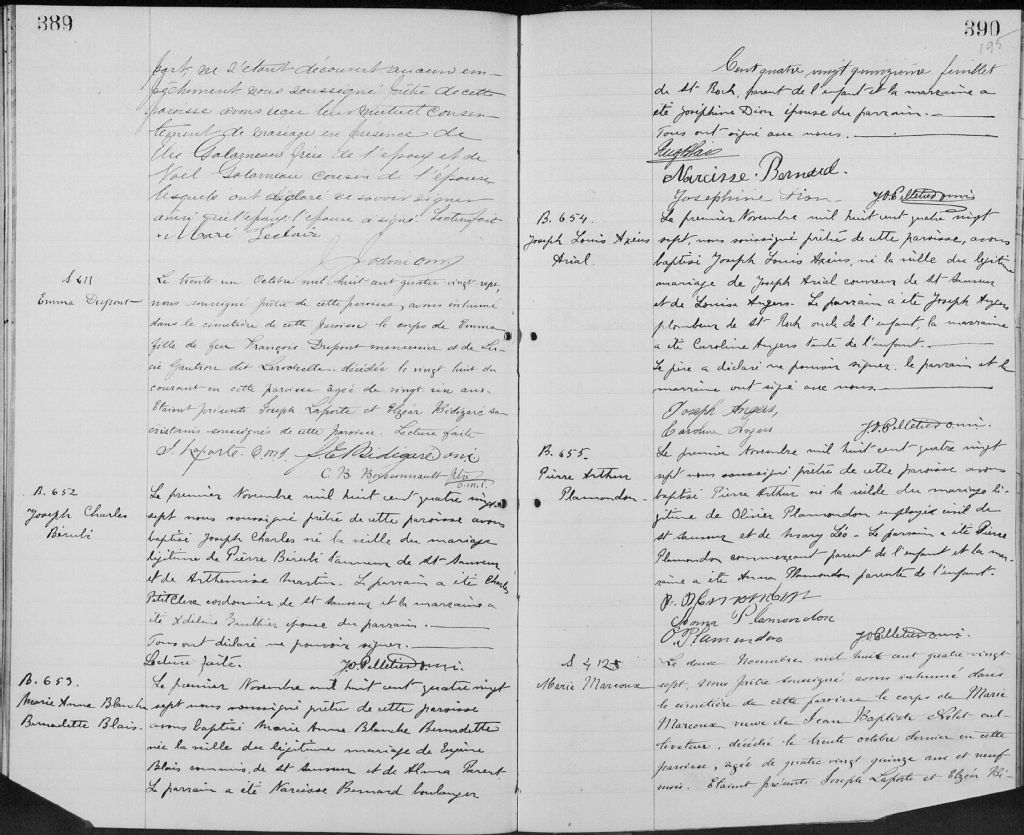 389
part, ne s'étant découvert aucun em-
pêchement nous soussigné prêtre de cette
paroisse avons reçu leur mutuel consen-
tement de mariage en présence de
Galarneau frère de l'époux et de
Noël Galarneau cousin de l'épouse
lesquels ont déclaré ne savoir signer
ainsi que l'époux. l'épouse a signé. Lecture faite
Leclair
S. 411
Emma Dupont
Le trente un Octobre mil huit cent quatre vingt sept,
nous soussigné prêtre de cette paroisse, avons inhumé
dans le cimetière de cette paroisse le corps de Emma
fille de feu François Dupont menuisier et de Lu-
cie Gautron dit Larochelle. décédée le vingt huit du
courant en cette paroisse agée de vingt un ans.
Etaient présents Joseph Laporte et Elzéar Bédigaré sa-
cristains soussignés de cette paroisse. Lecture faite
J. Laporte. O.M.I. E Bédigaré omi
C B Boissonnault Ptre
O.M.I.
B. 652
Joseph Charles
Bérubé
Le premier Novembre mil huit cent quatre vingt
sept nous soussigné prêtre de cette paroisse avons
baptisé Joseph Charles né la veille du mariage
légitime de Pierre Bérubé tanneur de St Sauveur
et de Arthemise Martin. Le parrain a été Charles
Petitclerc cordonnier, de St Sauveur et la marraine a
été Adeline Gauthier epouse du parrain.
Tous ont déclaré ne pouvoir signer.
Lecture faite. J.O. Pelletier omi.
B. 653.
Marie Anne Blanche
Bernadette Blais.
Le premier Novembre mil huit cent quatre vingt
sept nous soussigné prêtre de cette paroisse
avons baptisé Marie Anne Blanche Bernadette
née la veille du légitime mariage de Eugène
Blais commis, de St Sauveur et de Alma Parent
Le parrain a été Narcisse Bernard boulanger
390
195
Cent quatre vingt quinzième feuillet
de St Roch, parent de l'enfant et la marraine a
été Joséphine Dion épouse du parrain.
Tous ont signé avec nous.
Eug Blais
Narcisse Bernard.
Josephine Dion J.O. Pelletier omi
B. 654.
Joseph Louis Axéus
Arial.
Le premier Novembre mil huit cent quatre vingt
sept, nous soussigné prêtre de cette paroisse, avons
baptisé Joseph Louis Axéus, né la veille du légitime
mariage de Joseph Arial couvreur de St Sauveur
et de Louisa Angers. Le parrain a été Joseph Angers
plombeur de St Roch oncle de l'enfant, la marraine
a été Caroline Angers tante de l'enfant.
Le père a déclaré ne pouvoir signer. le parrain et la
marraine ont signé avec nous
Joseph Angers,
Caroline Angers J.O. Pelletier omi.
B. 655.
Pierre Arthur
Plamondon
Le premier Novembre mil huit cent quatre vingt
sept nous soussigné prêtre de cette paroisse avons
baptisé Pierre Arthur né la veille du mariage lé-
gitime de Olivier Plamondon employé civil de
St Sauveur et de Mary Léo. Le parrain a été Pierre
Plamondon commerçant parent de l'enfant et la mar-
raine a été Anna Plamondon parente de l'enfant.
Anna Plamondon
O Plamondon J.O. Pelletier omi.
S. 412
Marie Marcoux
Le deux Novembre mil huit cent quatre vingt
sept, nous prêtre soussigné avons inhumé dans
le cimetière de cette paroisse le corps de Marie
Marcoux veuve de Jean Baptiste Nolet cul-
tivateur, décédée le trente octobre dernier en cette
paroisse, agée de quatre vingt quinze ans et neuf
mois. Etaient présents Joseph Laporte et Elzéar Bé-